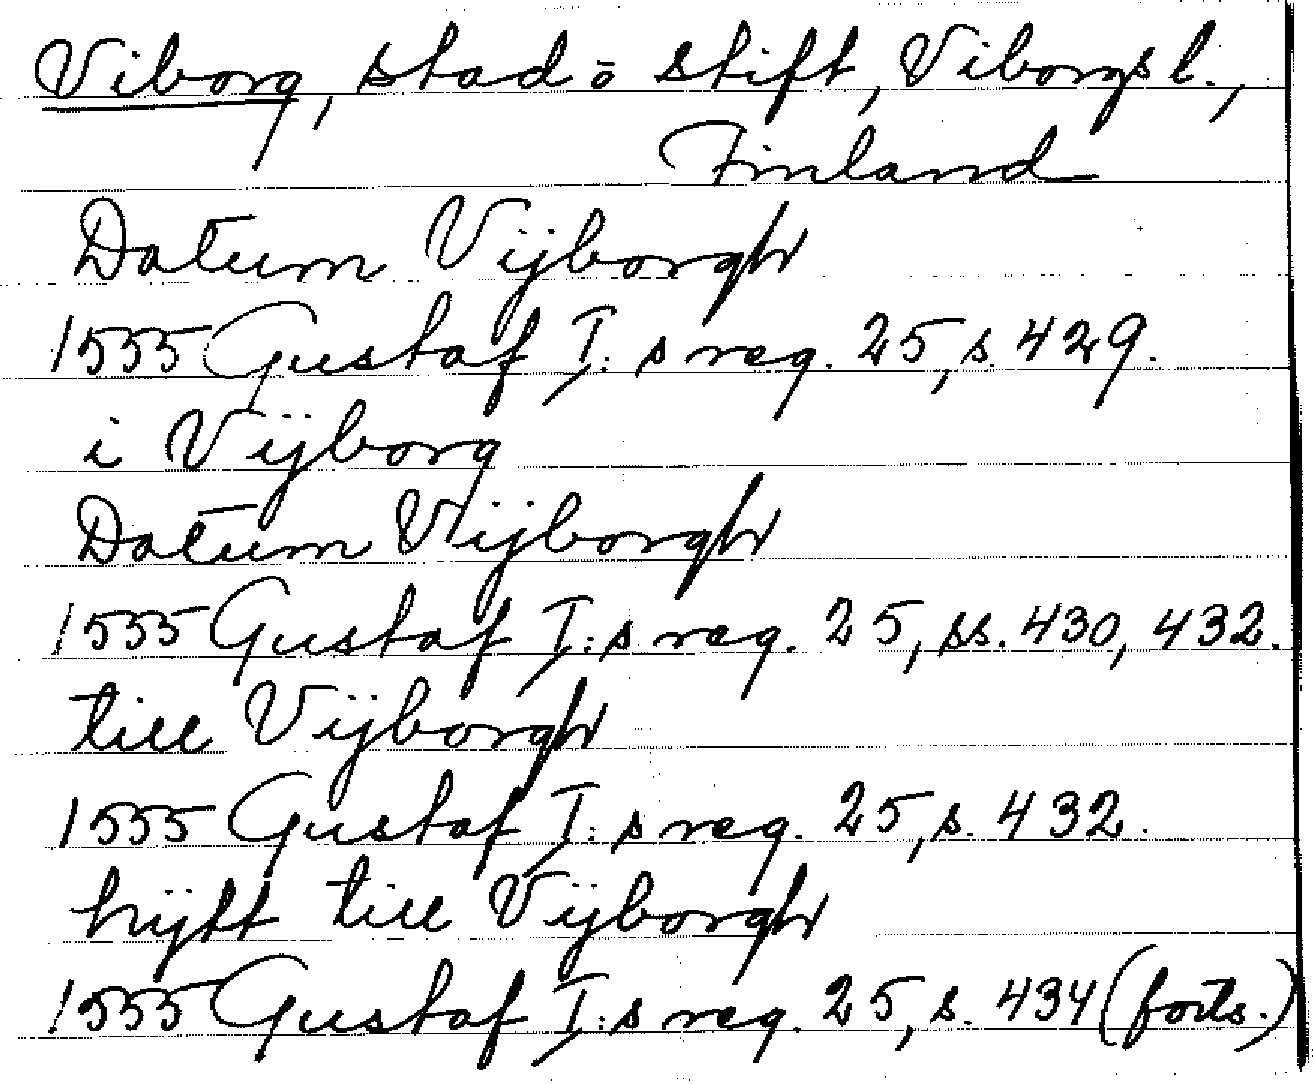 Viborg, stad o stift, Viborgs l.,
Finland
Datum Vijborgh
1555 Gustaf I:s reg. 25, s. 429.
i Vijborg
Datum Vijborgh
1555 Gustaf I:s reg. 25, ss. 430, 432.
till Vijborgh
1555 Gustaf I:s reg. 25, s. 432.
hijtt till Vijborgh
1555 Gustaf I:s reg. 25, s. 434 (forts.)